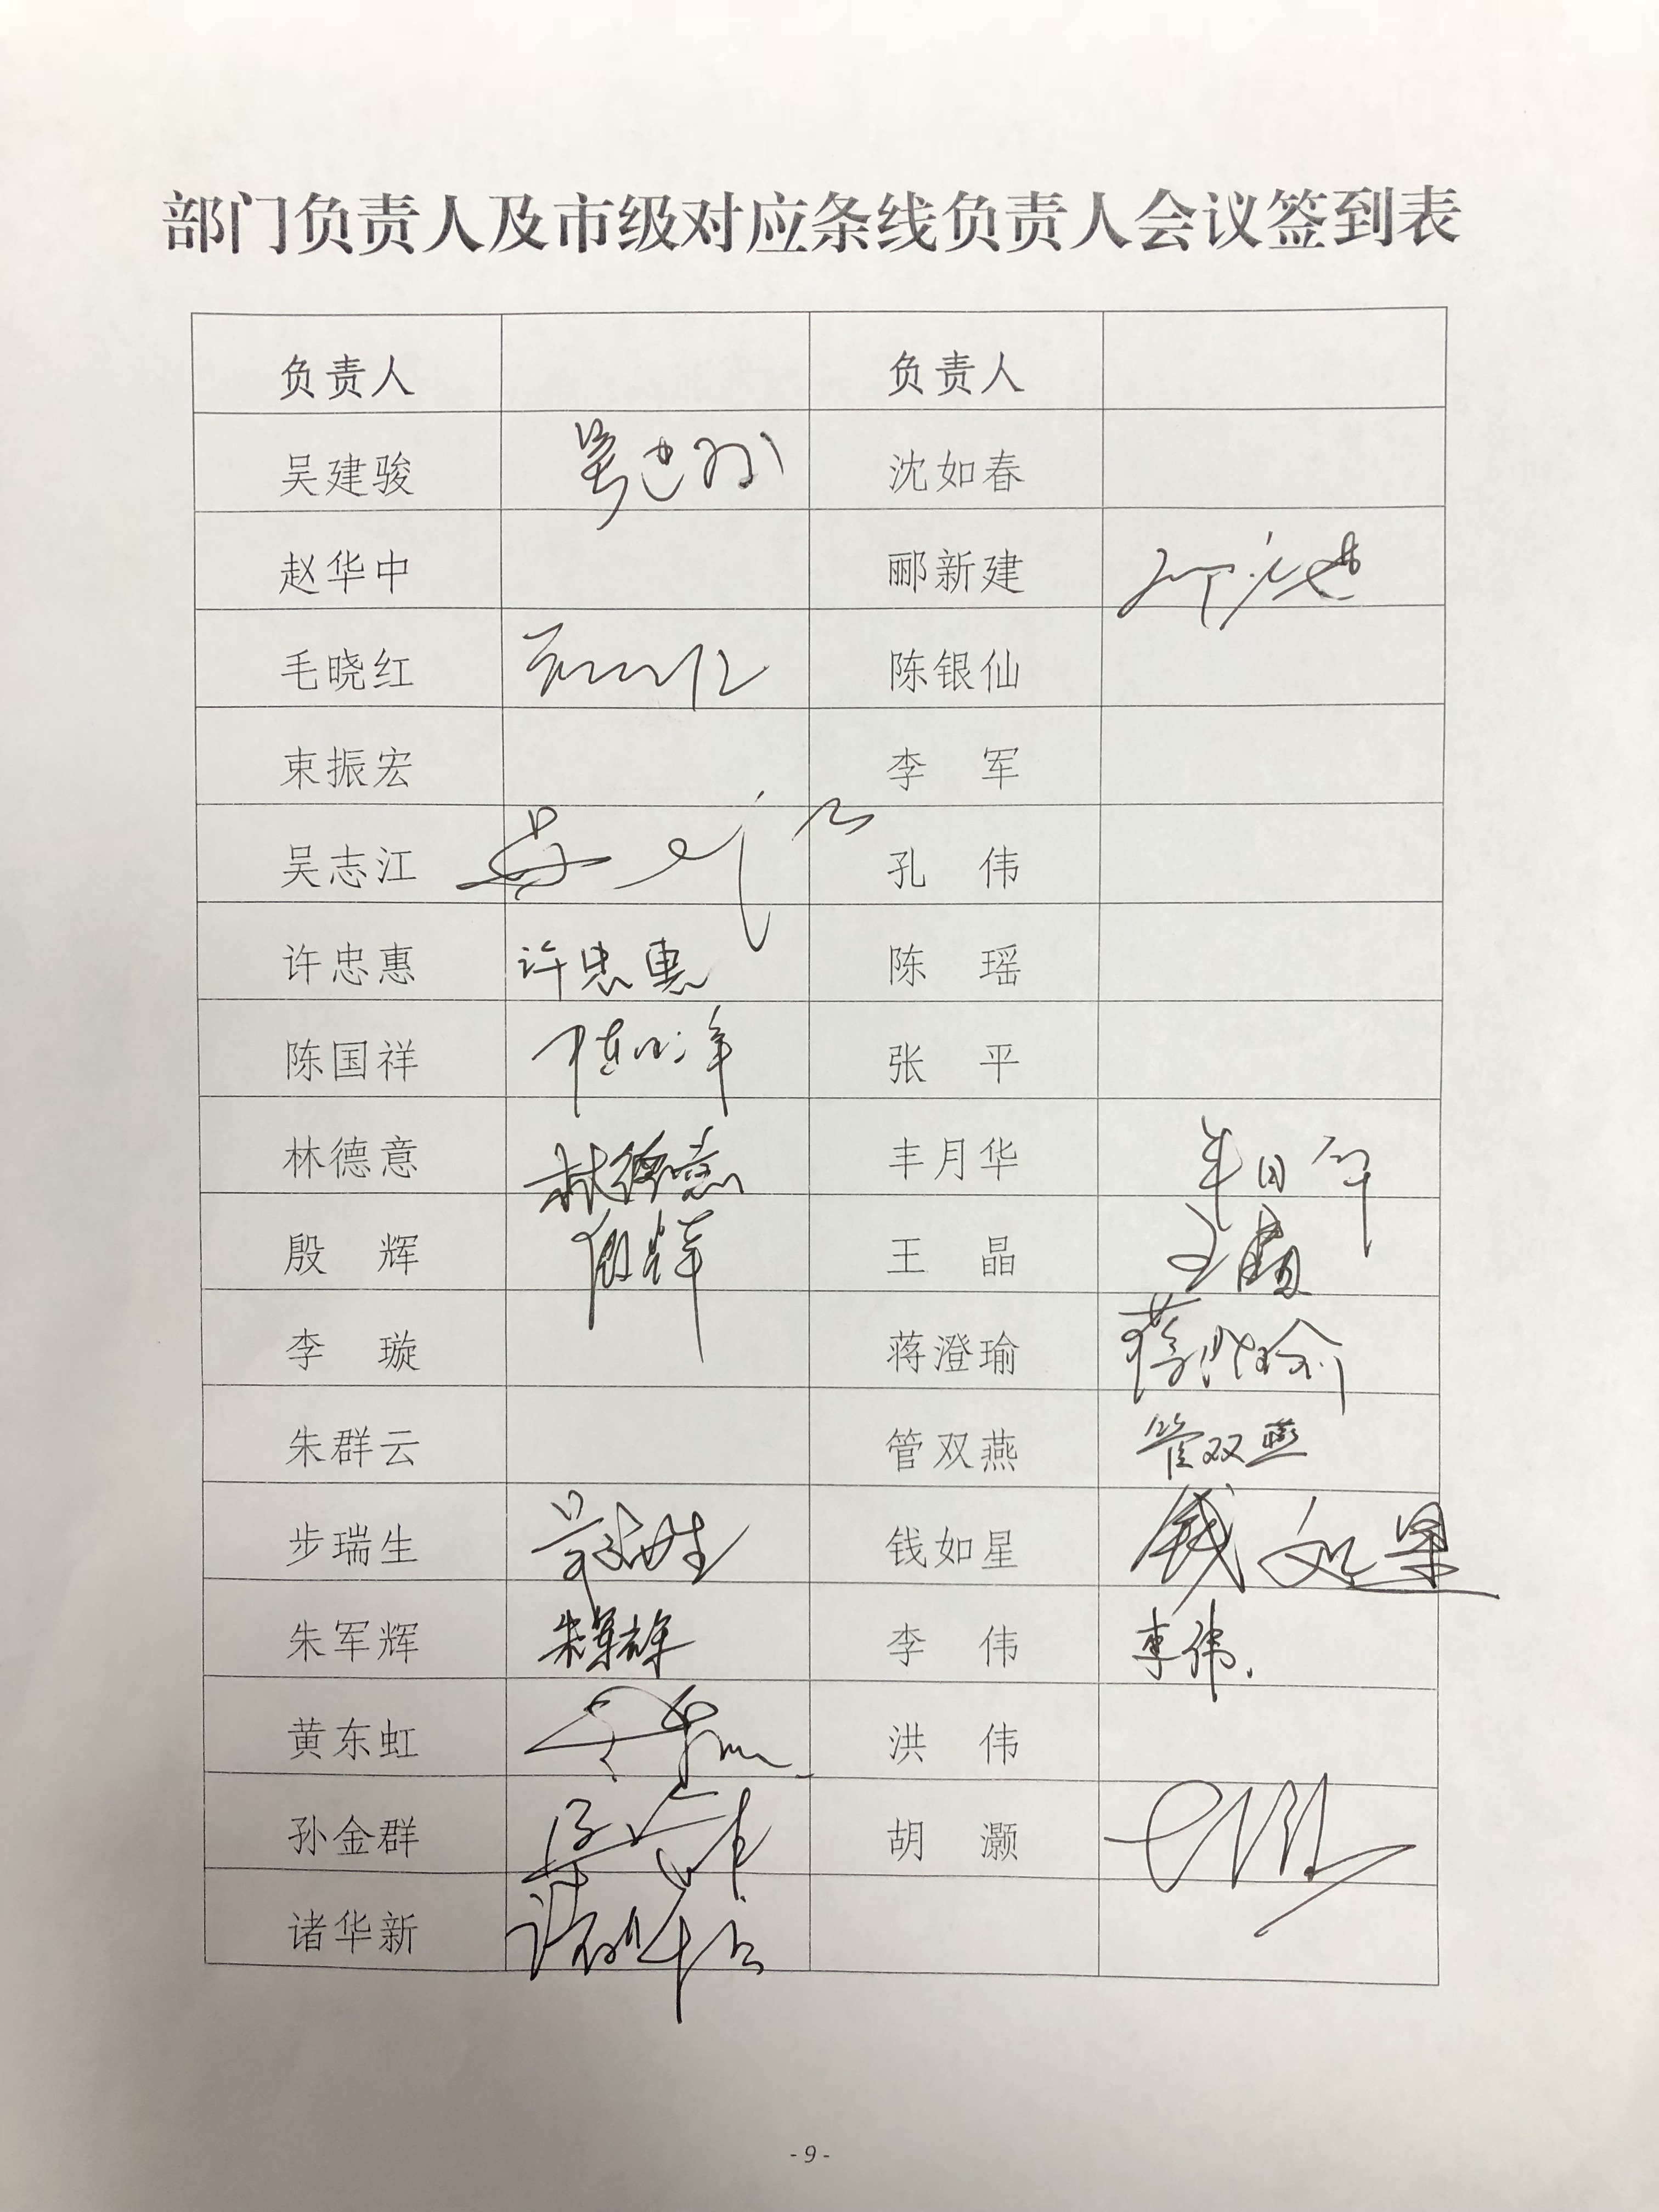 部门负责人及市级对应条线负责人会议签到表
负责人 负责人
吴建骏 吴建骏 沈如春
赵华中 郦新建
毛晓红 陈银仙
束振宏 李 军
吴志江 孔 伟
许忠惠 许忠惠 陈 瑶
陈国祥 陈国祥 张 平
林德意 林德意 丰月华 丰月华
殷 辉 殷辉 王 晶 王晶
李 璇 蒋澄瑜 蒋澄瑜
朱群云 管双燕 管双燕
步瑞生 步瑞生 钱如星 钱如星
朱军辉 朱军辉 李 伟 李伟.
黄东虹 洪 伟
孙金群 胡 灏
诸华新 诸华新
- 9 -